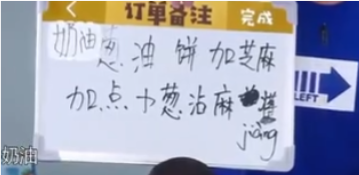 订单备注 完成
奶油葱油饼加芝麻
加点小葱沾麻
jiàng
LEFT
奶油